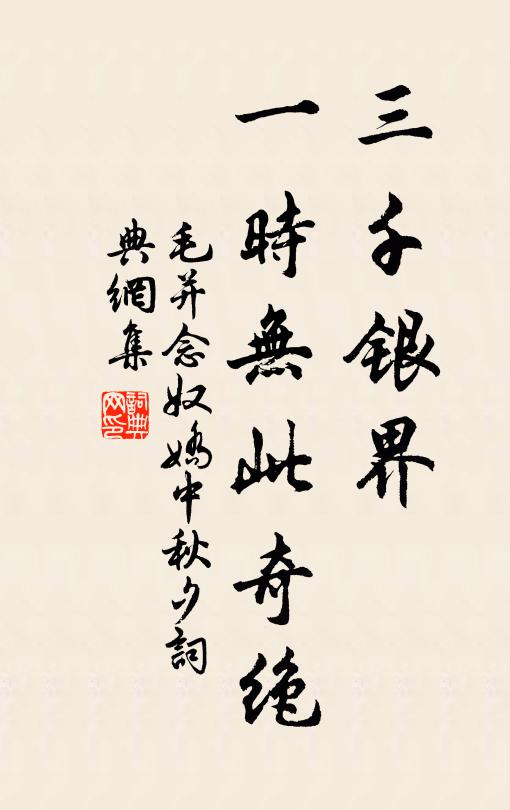 三千銀界
一時無此奇絶
毛并念奴嬌中秋夕詞
典網集
詞典網印